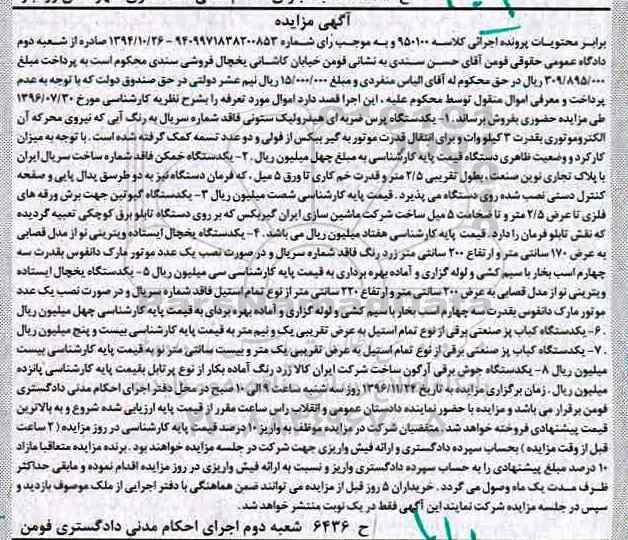 آگهی مزایده
برابر محتویات پرونده اجرائی کلاسه ۹۵۰۱۰۰ و به موجب رأی شماره ۹۴۰۹۹۷۱۸۳۸۲۰۰۸۵۳ – ۱۳۹۴/۱۰/۲۶ صادره از شعبه دوم
دادگاه عمومی حقوقی فومن آقای حسن سندی به نشانی فومن خیابان کاشانی یخچال فروشی سندی محکوم است به پرداخت مبلغ
۳۰۹/۸۹۵/۰۰۰ ریال در حق محکوم له آقای الیاس منفردی و مبلغ ۱۵/۰۰۰/۰۰۰ ریال نیم عشر دولتی در حق صندوق دولت که با توجه به عدم
پرداخت و معرفی اموال منقول توسط محکوم علیه ، این اجرا قصد دارد اموال مورد تعرفه را بشرح نظریه کارشناسی مورخ ۱۳۹۶/۰۷/۳۰
طی مزایده حضوری بفروش برساند. ۱- یکدستگاه پرس ضربه ای هیدرولیک ستونی فاقد شماره سریال به رنگ آبی که نیروی محرکه آن
الکتروموتوری بقدرت ۳ کیلو وات و برای انتقال قدرت موتور به گیربکس از فولی و دو عدد تسمه کمک گرفته شده است . با توجه به میزان
کارکرد و وضعیت ظاهری دستگاه قیمت پایه کارشناسی به مبلغ چهل میلیون ریال . ۲- یکدستگاه خمکن فاقد شماره ساخت سریال ایران
با پلاک تجاری نوین صنعت، بطول تقریبی ۲/۵ متر و قدرت خم کاری تا ورق ۵ میل ، که فرمان دستگاه نیز به دو طریق پدال پایی و صفحه
کنترل دستی نصب شده روی دستگاه می پذیرد . قیمت پایه کارشناسی شصت میلیون ریال ۳- یکدستگاه گیوتین جهت برش ورقه های
فلزی تا عرض ۲/۵ متر و تا ضخامت ۵ میل ساخت شرکت ماشین سازی ایران گیربکس که بر روی دستگاه تابلو برق کوچکی تعبیه گردیده
که نقش تابلو فرمان را دارد . قیمت پایه کارشناسی هفتاد میلیون ریال می باشد . ۴- یکدستگاه یخچال ایستاده ویترینی نو از مدل قصابی
به عرض ۱۷۰ سانتی متر و ارتفاع ۲۰۰ سانتی متر زرد رنگ فاقد شماره سریال و در صورت نصب یک عدد موتور مارک دانفوس بقدرت سه
چهارم اسب بخار با سیم کشی و لوله گزاری و آماده بهره برداری به قیمت پایه کارشناسی سی میلیون ریال ۵- یکدستگاه یخچال ایستاده
ویترینی نو از مدل قصابی به عرض ۲۰۰ سانتی متر و ارتفاع ۲۲۰ سانتی متر از نوع تمام استیل فاقد شماره سریال و در صورت نصب یک عدد
موتور مارک دانفوس بقدرت سه چهارم اسب بخار با سیم کشی و لوله گزاری و آماده بهره بردای به قیمت پایه کارشناسی چهل میلیون ریال
. ۶- یکدستگاه کباب پز صنعتی برقی از نوع تمام استیل به عرض تقریبی یک و نیم متر به قیمت پایه کارشناسی بیست و پنج میلیون ریال
. ۷- یکدستگاه کباب پز صنعتی برقی از نوع تمام استیل به عرض تقریبی یک متر و بیست سانتی متر نو به قیمت پایه کارشناسی بیست
میلیون ریال ۸- یکدستگاه جوش برقی آرگون ساخت شرکت ایران کالا زرد رنگ آماده بکار از نوع پرتابل بقیمت پایه کارشناسی پانزده
میلیون ریال . زمان برگزاری مزایده به تاریخ ۱۳۹۶/۱۱/۲۴ روز سه شنبه ساعت ۹ الی ۱۰ صبح در محل دفتر اجرای احکام مدنی دادگستری
فومن برقرار می باشد و مزایده با حضور نماینده دادستان عمومی و انقلاب راس ساعت مقرر از قیمت پایه ارزیابی شده شروع و به بالاترین
قیمت پیشنهادی فروخته خواهد شد . متقضیان شرکت در مزایده موظف به واریز ۱۰ درصد قیمت پایه کارشناسی در روز مزایده ( ۲ ساعت
قبل از وقت مزایده ) بحساب سپرده دادگستری و ارائه فیش واریزی جهت شرکت در جلسه مزایده خواهند بود . برنده مزایده متعاقبا مازاد
۱۰ درصد مبلغ پیشنهادی را به حساب سپرده دادگستری واریز و نسبت به ارائه فیش واریزی در روز مزایده اقدام نموده و مابقی حداکثر
ظرف مدت یک ماه وصول می گردد . خریداران ۵ روز قبل از مزایده می توانند ضمن هماهنگی با دفتر اجرایی از ملک موصوف بازدید و
سپس در جلسه مزایده شرکت نمایند این آگهی فقط در یک نوبت منتشر خواهد شد.
ح ۶۴۳۶ شعبه دوم اجرای احکام مدنی دادگستری فومن